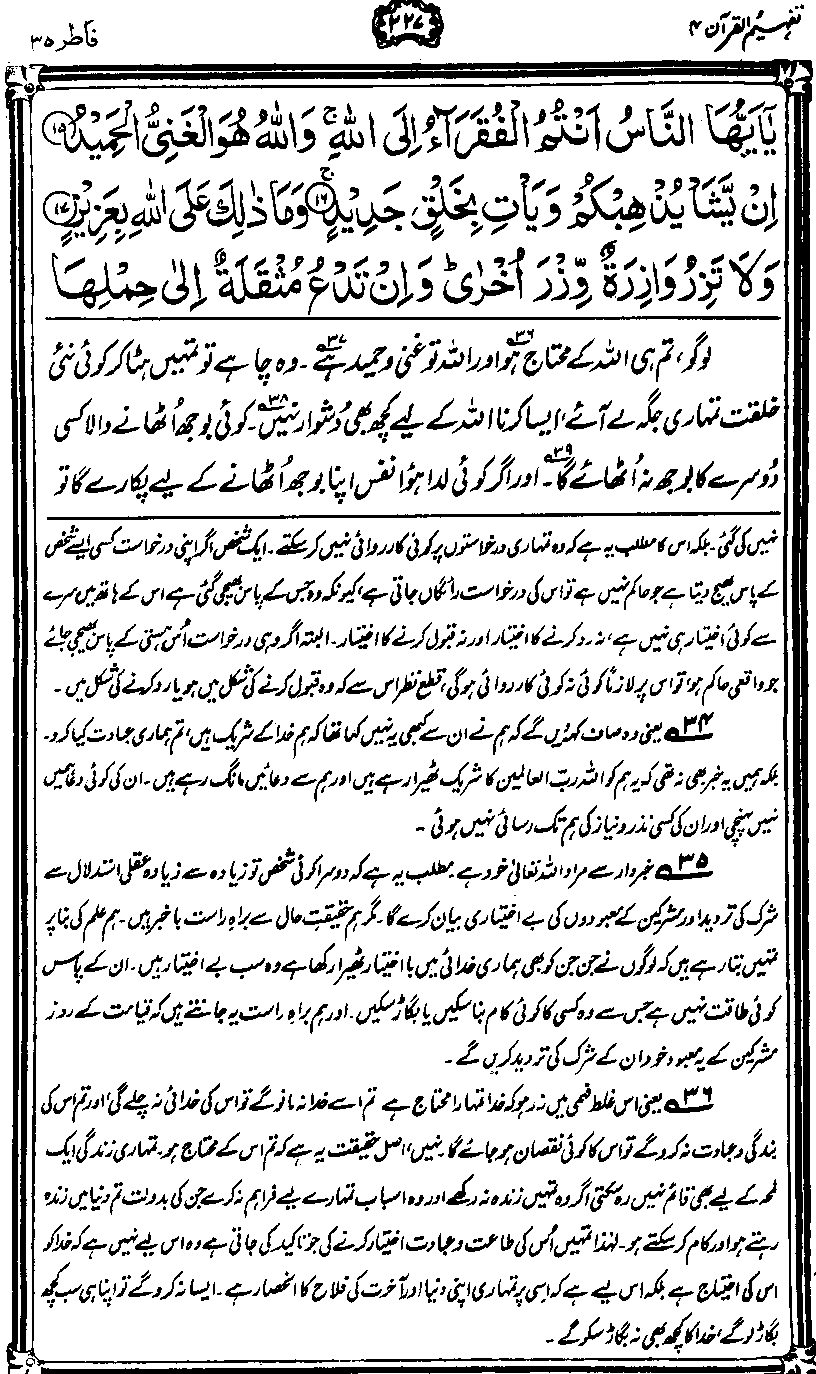 تفہیم القرآن ۴
۲۲۷
فاطر ۳۵
يٰۤاَيُّهَا النَّاسُ اَنْتُمُ الْفُقَرَآءُ اِلَى اللّٰهِ ۚ وَاللّٰهُ هُوَ الْغَنِىُّ الْحَمِيْدُ ۝۱۵
اِنْ يَّشَاْ يُذْهِبْكُمْ وَيَاْتِ بِخَلْقٍ جَدِيْدٍ ۝۱۶ ۚ وَمَا ذٰلِكَ عَلَى اللّٰهِ بِعَزِيْزٍ ۝۱۷
وَلَا تَزِرُ وَازِرَةٌ وِّزْرَ اُخْرٰى ؕ وَاِنْ تَدْعُ مُثْقَلَةٌ اِلٰى حِمْلِهَا
لوگو، تم ہی اللہ کے محتاج ہو۳۶ اور اللہ تو غنی و حمید ہے۳۷۔ وہ چاہے تو تمہیں ہٹا کر کوئی نئی
خلقت تمہاری جگہ لے آئے، ایسا کرنا اللہ کے لیے کچھ بھی دُشوار نہیں۳۸۔ کوئی بوجھ اُٹھانے والا کسی
دُوسرے کا بوجھ نہ اُٹھائے گا۳۹۔ اور اگر کوئی لدا ہؤا نفس اپنا بوجھ اُٹھانے کے لیے پکارے گا تو
نہیں کی گئی۔ بلکہ اس کا مطلب یہ ہے کہ وہ تمہاری درخواستوں پر کوئی کارروائی نہیں کر سکتے۔ ایک شخص اگر اپنی درخواست کسی ایسے شخص
کے پاس بھیج دیتا ہے جو حاکم نہیں ہے تو اس کی درخواست رائگاں جاتی ہے، کیونکہ وہ جس کے پاس بھیجی گئی ہے اس کے ہاتھ میں سرے
سے کوئی اختیار ہی نہیں ہے، نہ رد کرنے کا اختیار اور نہ قبول کرنے کا اختیار۔ البتہ اگر وہی درخواست اُس ہستی کے پاس بھیجی جائے
جو واقعی حاکم ہو، تو اس پر لازماً کوئی نہ کوئی کارروائی ہوگی، قطع نظر اس سے کہ وہ قبول کرنے کی شکل میں ہو یا رد کرنے کی شکل میں۔
۳۴ یعنی وہ صاف کہہ دیں گے کہ ہم نے ان سے کبھی یہ نہیں کہا تھا کہ ہم خدا کے شریک ہیں، تم ہماری عبادت کیا کرو۔
بلکہ ہمیں یہ خبر بھی نہ تھی کہ یہ ہم کو اللہ رب العالمین کا شریک ٹھیرا رہے ہیں اور ہم سے دعائیں مانگ رہے ہیں۔ ان کی کوئی دعا ہمیں
نہیں پہنچی اور ان کی کسی نذر و نیاز کی ہم تک رسائی نہیں ہوئی۔
۳۵ خبردار سے مراد اللہ تعالیٰ خود ہے۔ مطلب یہ ہے کہ دوسرا کوئی شخص تو زیادہ سے زیادہ عقلی استدلال سے
شرک کی تردید اور مشرکین کے معبودوں کی بے اختیاری بیان کرے گا۔ مگر ہم حقیقتِ حال سے براہِ راست باخبر ہیں۔ ہم علم کی بنا پر
تمہیں بتا رہے ہیں کہ لوگوں نے جن جن کو بھی ہماری خدائی میں بااختیار ٹھیرا رکھا ہے وہ سب بے اختیار ہیں۔ ان کے پاس
کوئی طاقت نہیں ہے جس سے وہ کسی کا کوئی کام بنا سکیں یا بگاڑ سکیں۔ اور ہم براہِ راست یہ جانتے ہیں کہ قیامت کے روز
مشرکین کے یہ معبود خود ان کے شرک کی تردید کریں گے۔
۳۶ یعنی اس غلط فہمی میں نہ رہو کہ خدا تمہارا محتاج ہے، تم اسے خدا نہ مانو گے تو اس کی خدائی نہ چلے گی، اور تم اس کی
بندگی و عبادت نہ کرو گے تو اس کا کوئی نقصان ہو جائے گا۔ نہیں، اصل حقیقت یہ ہے کہ تم اس کے محتاج ہو۔ تمہاری زندگی ایک
لمحہ کے لیے بھی قائم نہیں رہ سکتی اگر وہ تمہیں زندہ نہ رکھے اور وہ اسباب تمہارے لیے فراہم نہ کرے جن کی بدولت تم دنیا میں زندہ
رہتے ہو اور کام کر سکتے ہو۔ لہٰذا تمہیں اُس کی طاعت و عبادت اختیار کرنے کی جو تاکید کی جاتی ہے وہ اس لیے نہیں ہے کہ خدا کو
اس کی احتیاج ہے بلکہ اس لیے ہے کہ اسی پر تمہاری اپنی دنیا اور آخرت کی فلاح کا انحصار ہے۔ ایسا نہ کرو گے تو اپنا ہی سب کچھ
بگاڑ لو گے، خدا کا کچھ بھی نہ بگاڑ سکو گے۔